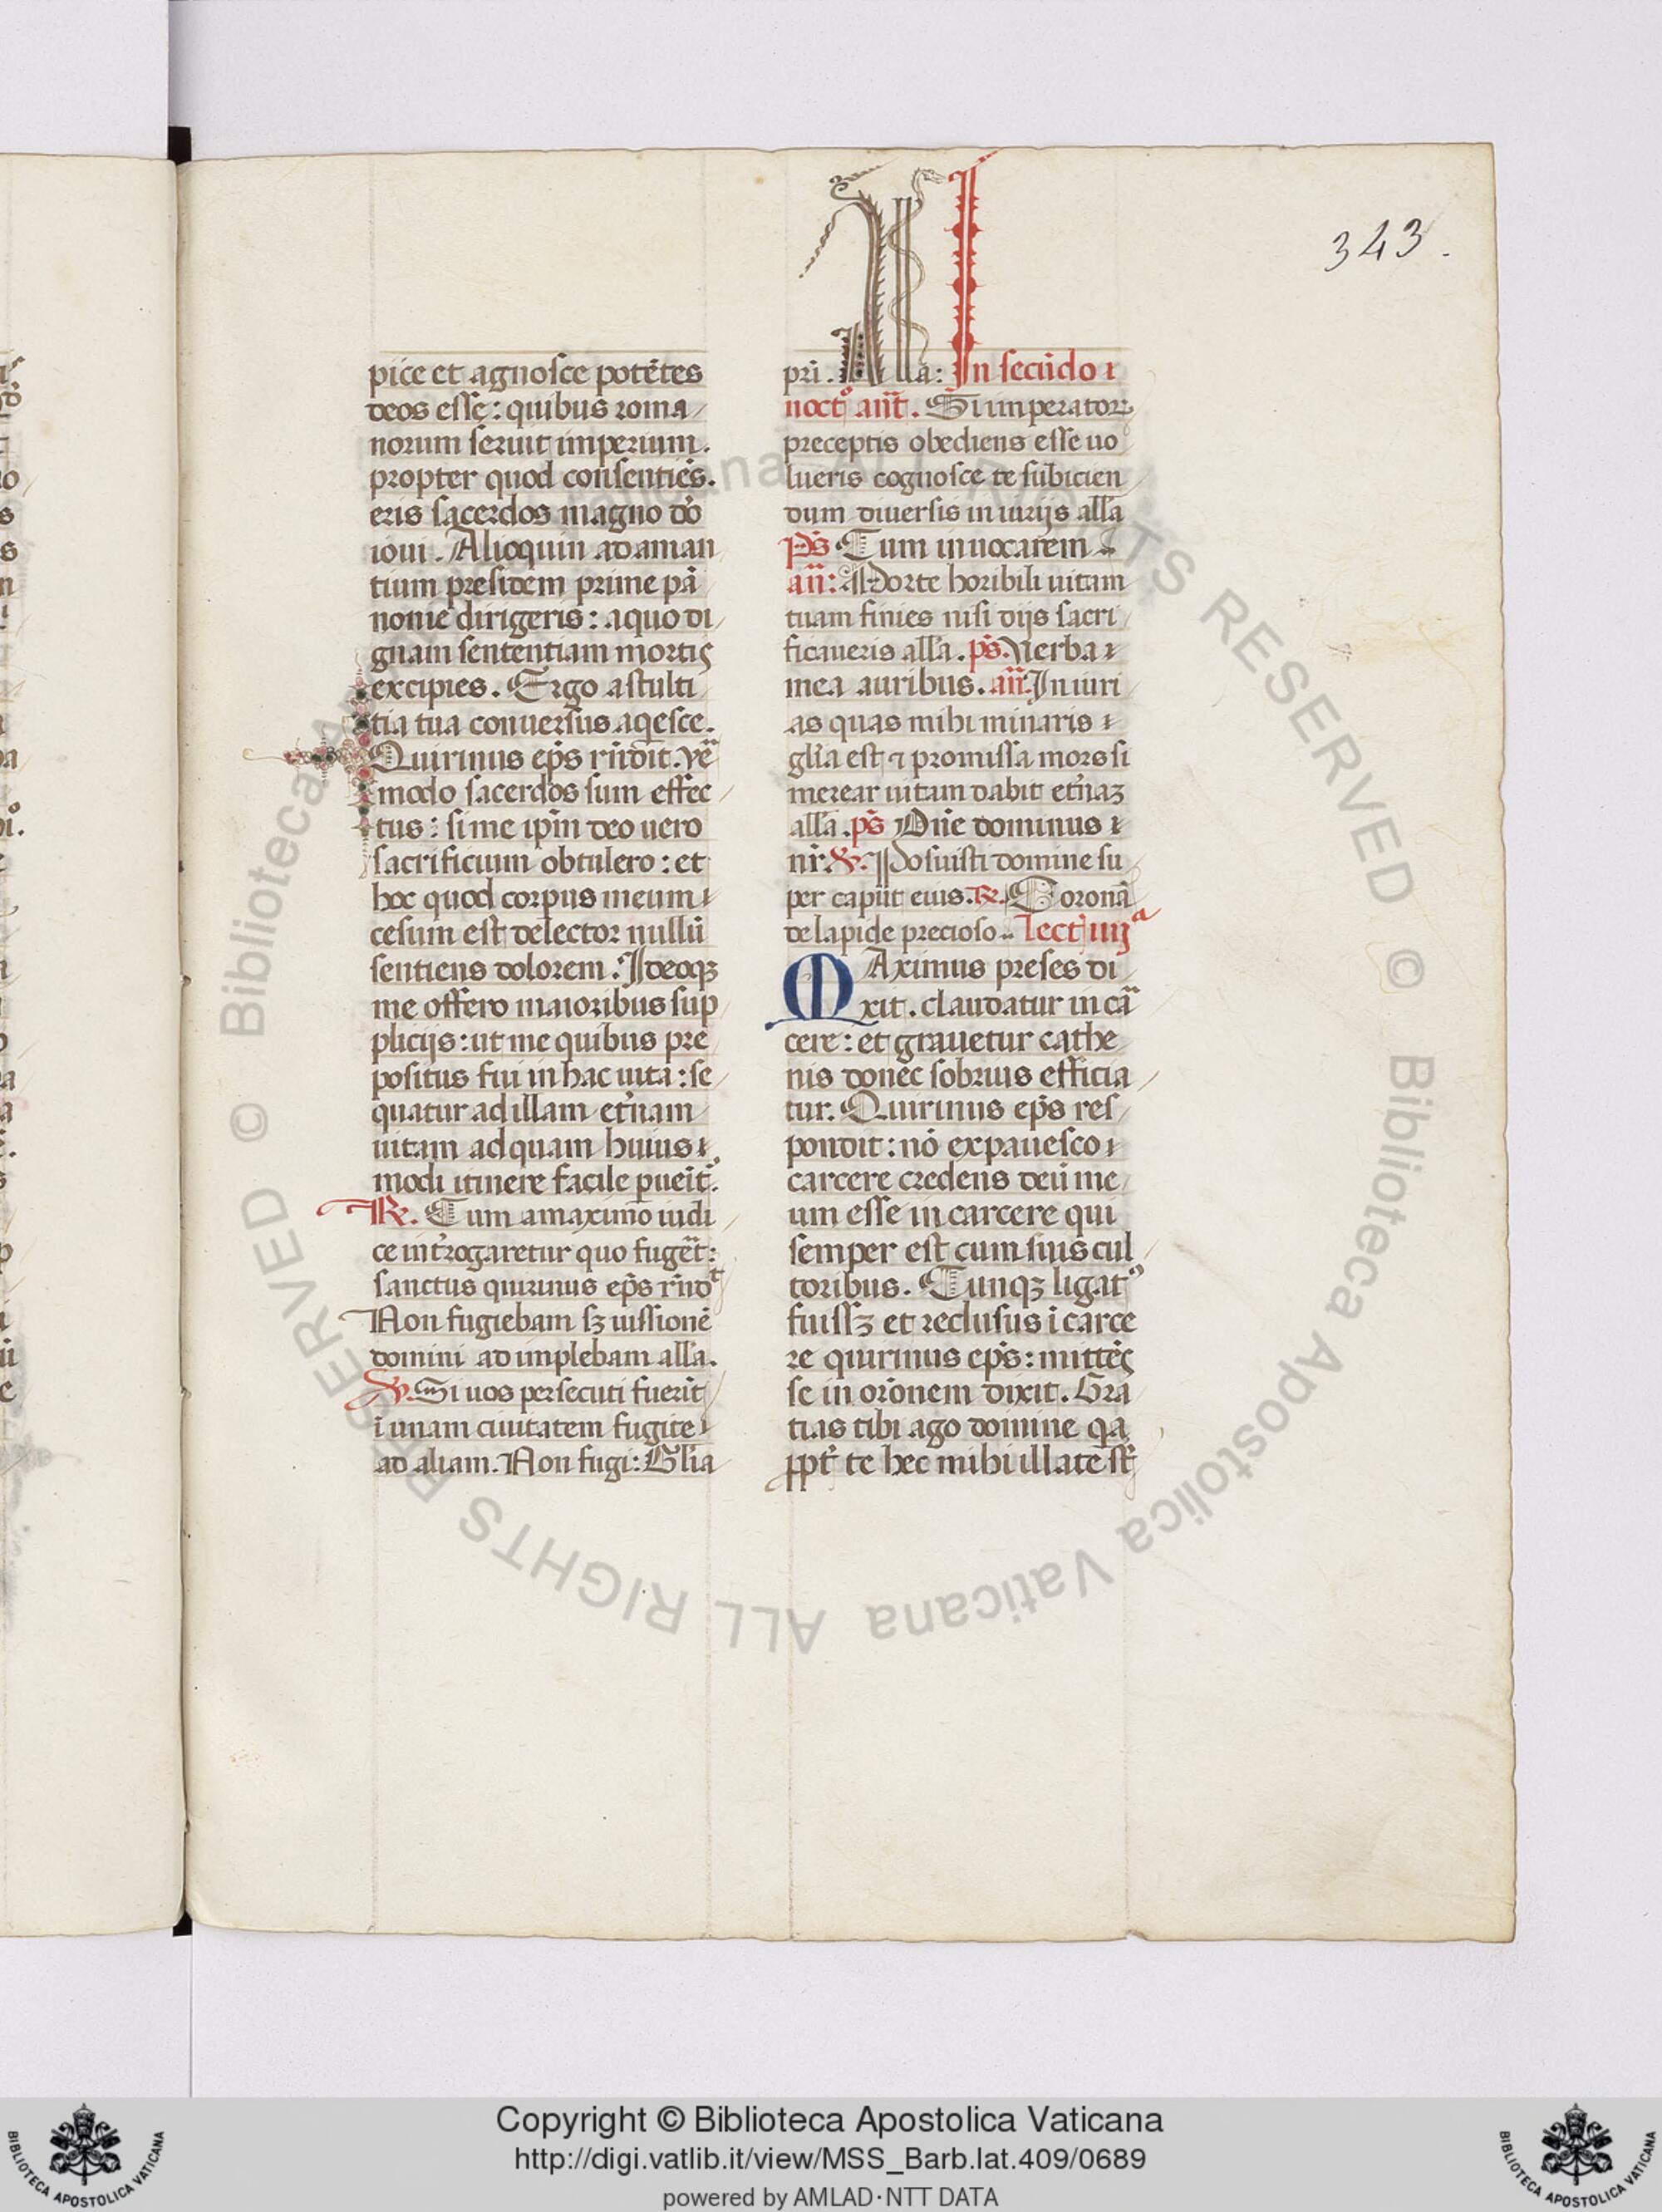 343.
pice et agnosce potētes
deos esse: quibus roma
norum seruit imperium.
propter quod consenties.
eris sacerdos magno dō
ioui. Alioquin ad aman
tium presidem prime pā
nonie dirigeris: a quo di
gnam sententiam mortis
excipies. Ergo a stulti
tia tua conuersus aqesce.
Quirinus ep̄s rn̄dit. ve᷑
modo sacerdos sum effec
tus: si me ip̄m deo uero
sacrificium obtulero: et
hoc quod corpus meum
cesum est delector nullū
sentiens dolorem. Ideoqꝫ
me offero maioribus sup
plicijs: ut me quibus pre
positus fui in hac uita: se
quatur ad illam et̓nam
uitam ad quam huius
modi itinere facile ꝑueīt.
R. Cum a maximo iudi
ce int̓rogaretur quo fuget̓:
sanctus quirinus ep̄s rn̄dᵗ
Non fugiebam sꝫ iussionē
domini adimplebam alla.
V. Si uos persecuti fuerīt
ī unam ciuitatem fugite
ad aliam. Non fugi: Gl̄ia
pr̄i. Alla: In secūdo
noct̓ᵒ ant̄. Si imperatoꝝ
preceptis obediens esse uo
lueris cognosce te subicien
dum diuersis iniurijs alla
ps̄ Cum inuocarem
an̄: Morte horibili uitam
tuam finies nisi dijs sacri
ficaueris alla. ps̄. Verba
mea auribus. an̄. Iniuri
as quas mihi minaris
gl̄ia est ⁊ promissa mors si
merear uitam dabit et̓naꝫ
alla. ps̄ Dn̄e dominus
nr̄. V. Posuisti domine su
per caput eius. R. Coronā
de lapide precioso. lect̓ iiijᵃ
MAximus preses di
xit. claudatur in ca᷑
cere: et grauetur cathe
nis donec sobrius efficia
tur. Quirinus ep̄s res
pondit: nō expauesco
carcere credens deū me
um esse in carcere qui
semper est cum suis cul
toribus. Cunqꝫ ligatꝰ
fuissꝫ et reclusus ī carce
re quirinus ep̄s: mittēs
se in orōnem dixit. Gra
tias tibi ago domine qa
ꝓpt̓ te hec mihi illate st̄
© Biblioteca Apostolica Vaticana ALL RIGHTS RESERVED © Biblioteca Apostolica Vaticana ALL RIGHTS RESERVED
Copyright © Biblioteca Apostolica Vaticana
http://digi.vatlib.it/view/MSS_Barb.lat.409/0689
powered by AMLAD·NTT DATA
BIBLIOTECA APOSTOLICA VATICANA
BIBLIOTECA APOSTOLICA VATICANA